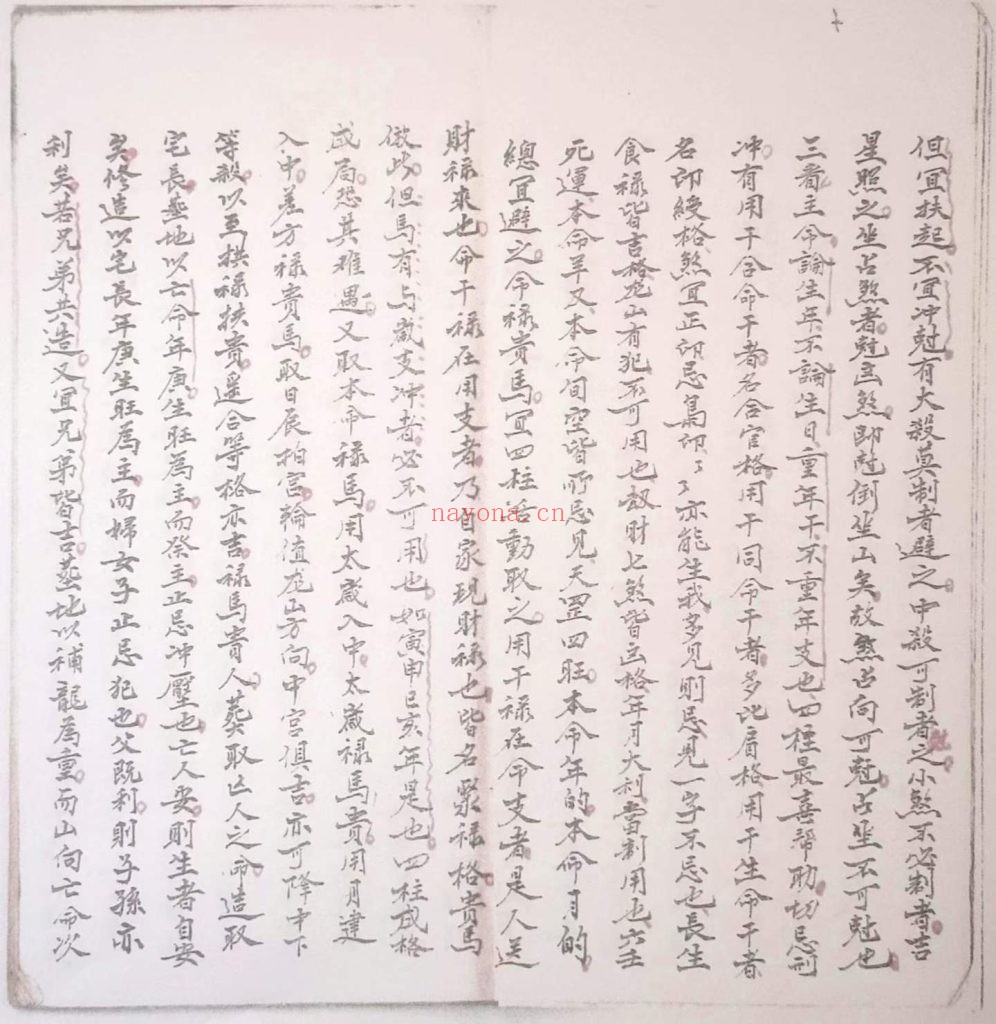 但宜扶起不宜冲尅有大殺莫制者避之中殺可制者之小煞不必制者吉
星照之坐占煞者尅玄煞即尅倒坐山矣故煞占向可尅占坐不可尅也
三看主命論生年不論生日重年干不重年支也四柱最喜帮助切忌刑
冲有用干合命干者名合官格用干同命干者多比肩格用干生命干者
名印綬格煞宜正印忌梟印々々亦能生我多見則忌見一字不忌也長生
食禄皆吉格龙山有犯不可用也劫財七煞皆立格年月大利當制用也六壬
死運本命羊刃本命旬空皆所忌見天罡四旺本命年的本命月的
總宜避之命禄貴馬宜四柱活動取之用干禄在命支者是人送
財禄來也命干禄在用支者乃自家現財禄也皆名聚禄格貴馬
倣此但馬有与歲支冲者必不可用也如寅申巳亥年是也四柱成格
成局恐其难遇又取本命禄馬用太歲入中太歲禄馬貴用月建
入中差方禄貴馬取日辰拍宫輪值龙山方向中宫俱吉亦可降中下
等殺以至拱禄拱貴遥合等格亦吉禄馬貴人葬取亡人之命造取
宅長葬地以亡命年庚生旺為主而祭主止忌冲壓也亡人安則生者自安
矣修造以宅長年庚生旺為主而婦女子止忌犯也父既利則子孫亦
利矣若兄弟共造又宜兄弟皆吉葬地以補龍為重而山向亡命次
nayona.cn